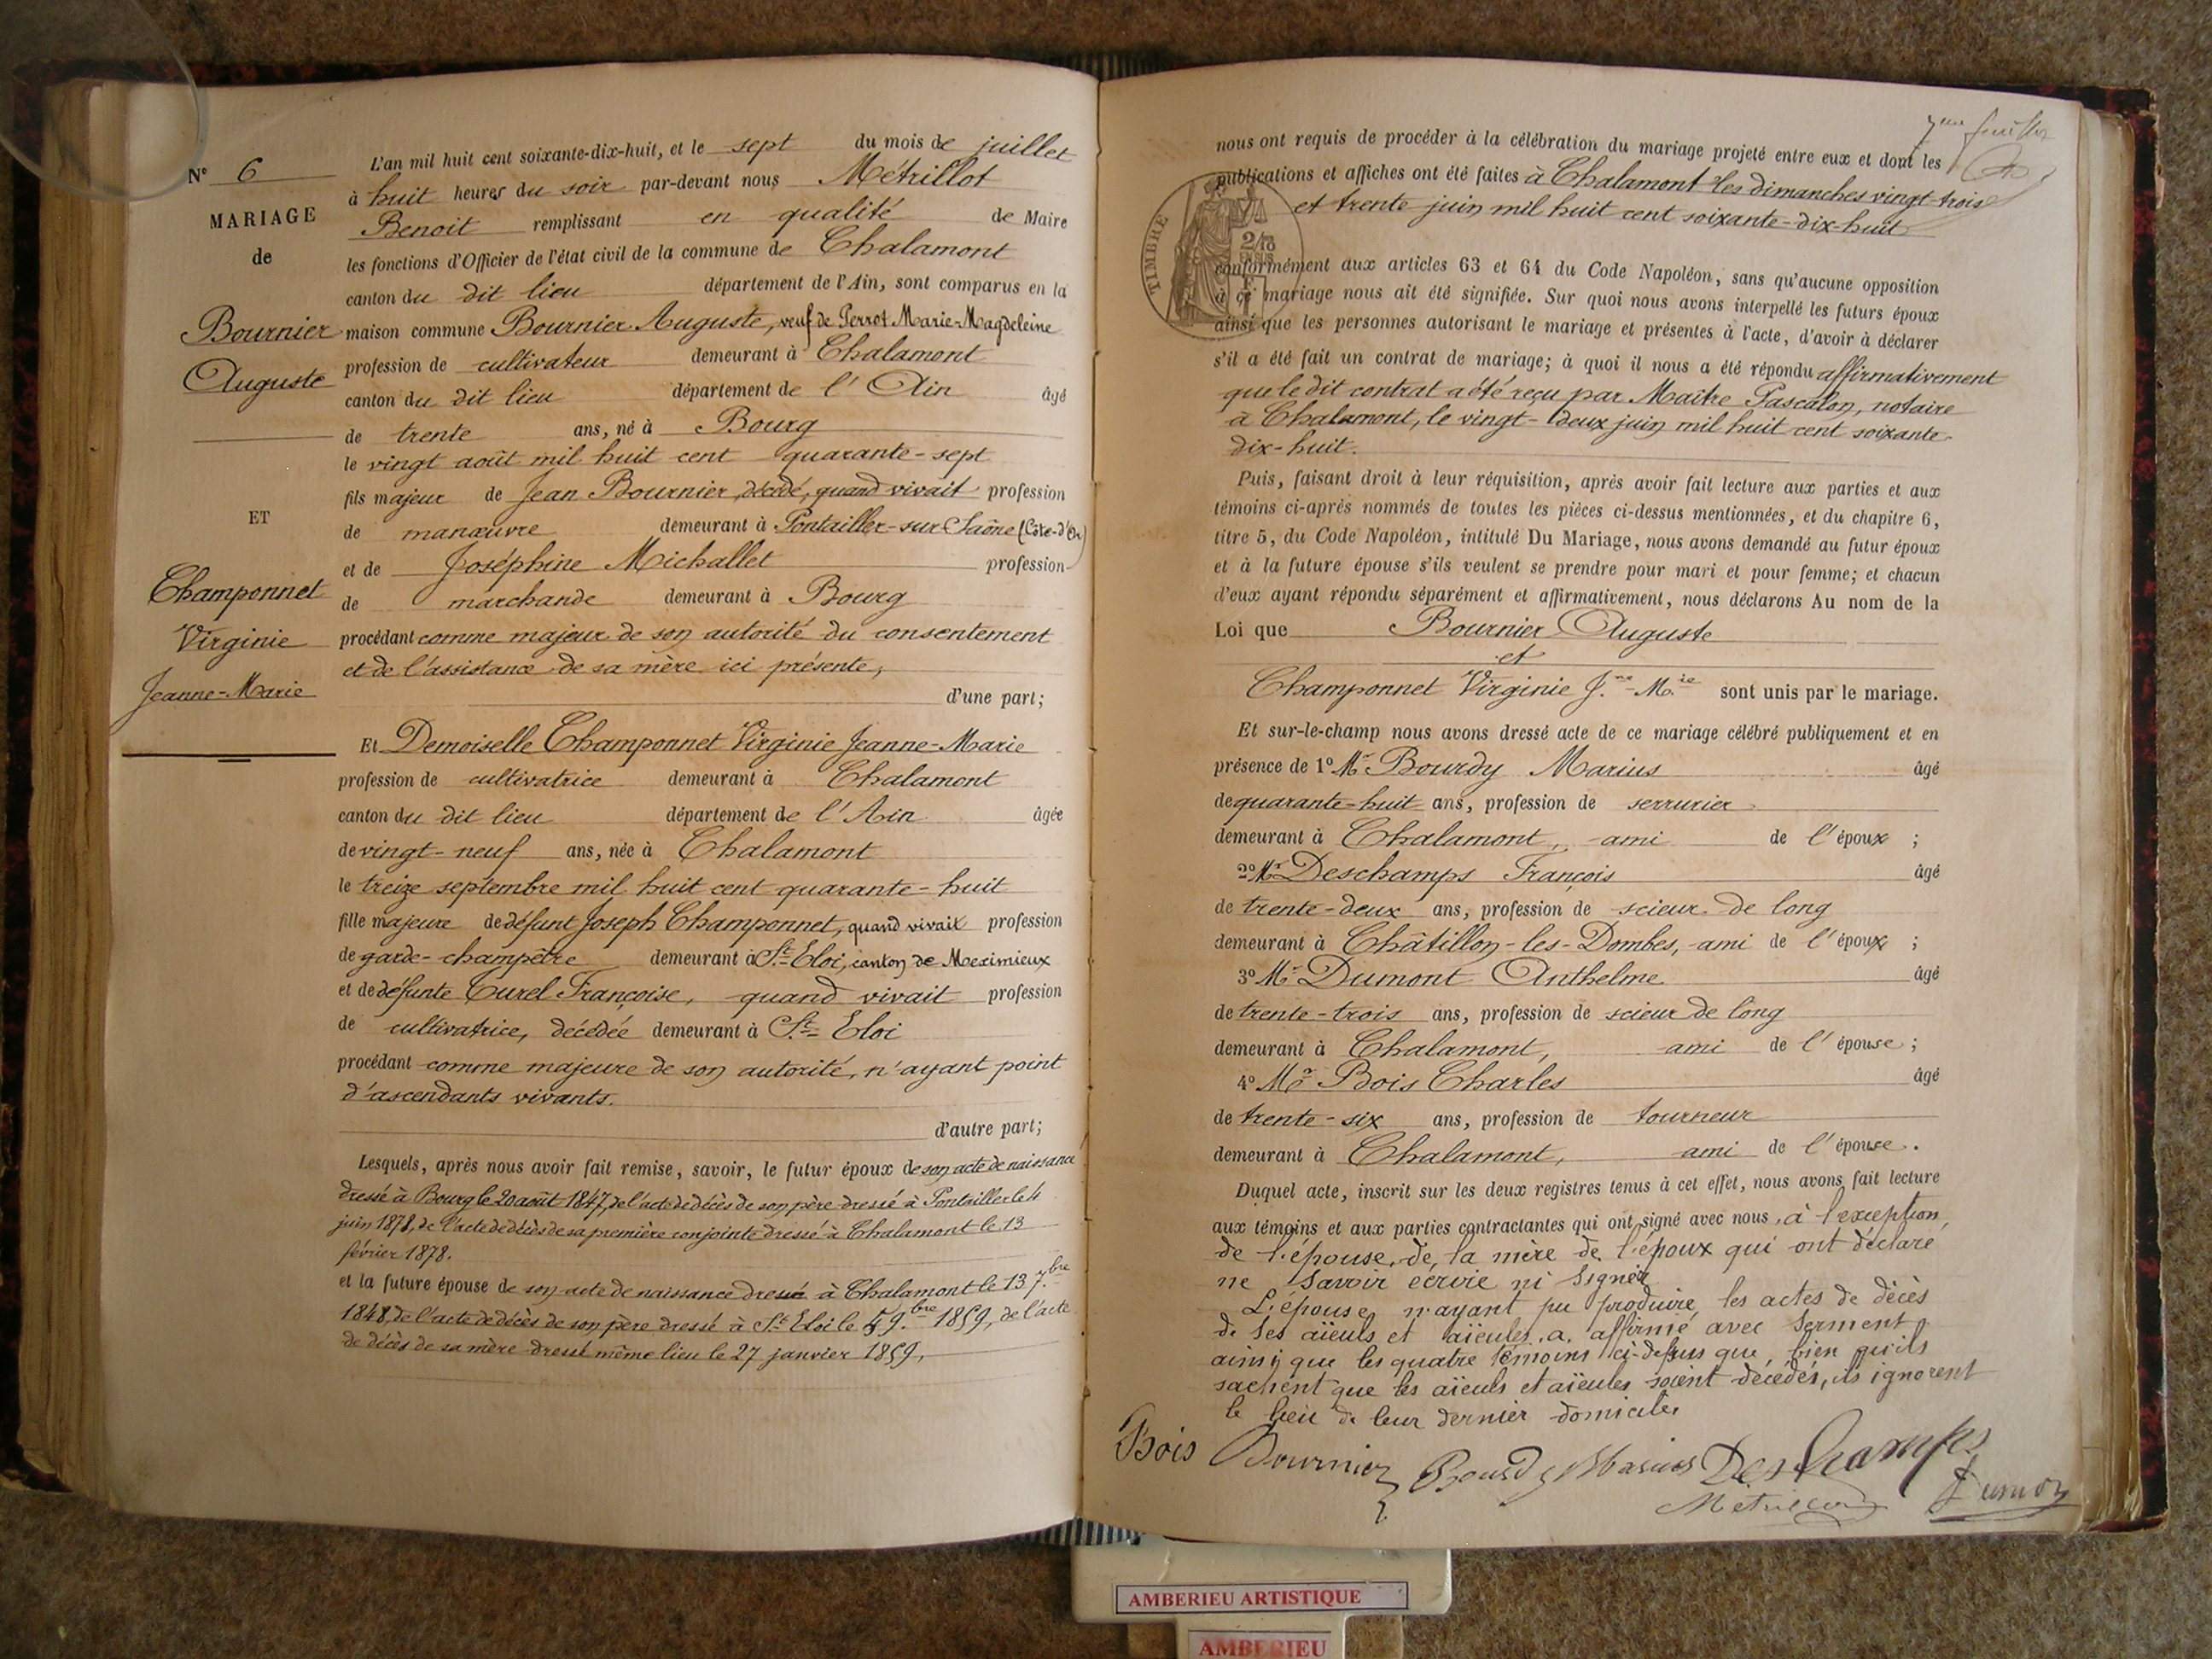 N° 6
MARIAGE
de
Bournier
Auguste
ET
Champonnet
Virginie
Jeanne-Marie
L'an mil huit cent soixante-dix-huit, et le sept du mois de juillet
à huit heures du soir par-devant nous Métrillot
Benoit remplissant en qualité de Maire
les fonctions d'Officier de l'état civil de la commune de Chalamont
canton du dit lieu département de l'Ain, sont comparus en la
maison commune Bournier Auguste, veuf de Perrot Marie-Magdeleine
profession de cultivateur demeurant à Chalamont
canton du dit lieu département de l'Ain âgé
de trente ans, né à Bourg
le vingt août mil huit cent quarante-sept
fils majeur de Jean Bournier, décédé, quand vivait profession
de manœuvre demeurant à Pontailler-sur-Saône (Côte-d'Or)
et de Joséphine Michallet profession
de marchande demeurant à Bourg
procédant comme majeur de son autorité du consentement
et de l'assistance de sa mère ici présente,
d'une part;
Et Demoiselle Champonnet Virginie Jeanne-Marie
profession de cultivatrice demeurant à Chalamont
canton du dit lieu département de l'Ain âgée
de vingt-neuf ans, née à Chalamont
le treize septembre mil huit cent quarante-huit
fille majeure de défunt Joseph Champonnet, quand vivait profession
de garde-champêtre demeurant à St-Eloi, canton de Meximieux
et de défunte Curel Françoise, quand vivait profession
de cultivatrice, décédée demeurant à St-Eloi
procédant comme majeure de son autorité, n'ayant point
d'ascendants vivants.
d'autre part;
Lesquels, après nous avoir fait remise, savoir, le futur époux de son acte de naissance
dressé à Bourg le 20 août 1847, de l'acte de décès de son père dressé à Pontailler le 4
juin 1878, de l'acte de décès de sa première conjointe dressé à Chalamont le 13
février 1878.
et la future épouse de son acte de naissance dressé à Chalamont le 13 7.bre
1848, de l'acte de décès de son père dressé à St Eloi le 9.bre 1859, de l'acte
de décès de sa mère dressé même lieu le 27 janvier 1859,
7me feuillet
nous ont requis de procéder à la célébration du mariage projeté entre eux et dont les
publications et affiches ont été faites à Chalamont les dimanches vingt-trois
et trente juin mil huit cent soixante-dix-huit
TIMBRE
conformément aux articles 63 et 64 du Code Napoléon, sans qu'aucune opposition
à ce mariage nous ait été signifiée. Sur quoi nous avons interpellé les futurs époux
ainsi que les personnes autorisant le mariage et présentes à l'acte, d'avoir à déclarer
s'il a été fait un contrat de mariage; à quoi il nous a été répondu affirmativement
que le dit contrat a été reçu par Maître Pascalon, notaire
à Chalamont, le vingt-deux juin mil huit cent soixante-
dix-huit.
Puis, faisant droit à leur réquisition, après avoir fait lecture aux parties et aux
témoins ci-après nommés de toutes les pièces ci-dessus mentionnées, et du chapitre 6,
titre 5, du Code Napoléon, intitulé Du Mariage, nous avons demandé au futur époux
et à la future épouse s'ils veulent se prendre pour mari et pour femme; et chacun
d'eux ayant répondu séparément et affirmativement, nous déclarons Au nom de la
Loi que Bournier Auguste
et
Champonnet Virginie J.ne-M.ie sont unis par le mariage.
Et sur-le-champ nous avons dressé acte de ce mariage célébré publiquement et en
présence de 1° Mr Bourdy Marius âgé
de quarante-huit ans, profession de serrurier
demeurant à Chalamont, ami de l'époux ;
2° Mr Deschamps François âgé
de trente-deux ans, profession de scieur de long
demeurant à Châtillon-les-Dombes, ami de l'époux ;
3° Mr Dumont Anthelme âgé
de trente-trois ans, profession de scieur de long
demeurant à Chalamont, ami de l'épouse ;
4° Mr Bois Charles âgé
de trente-six ans, profession de tourneur
demeurant à Chalamont, ami de l'épouse.
Duquel acte, inscrit sur les deux registres tenus à cet effet, nous avons fait lecture
aux témoins et aux parties contractantes qui ont signé avec nous, à l'exception
de l'épouse, de la mère de l'époux qui ont déclaré
ne savoir écrire ni signer
L'épouse n'ayant pu produire les actes de décès
de ses aïeuls et aïeules, a affirmé avec serment
ainsi que les quatre témoins ci-dessus que, bien qu'ils
sachent que les aïeuls et aïeules soient décédés, ils ignorent
le lieu de leur dernier domicile.
Bois Bournier Bourdy Marius Deschamps
Métrillot Dumon
AMBERIEU ARTISTIQUE
AMBERIEU